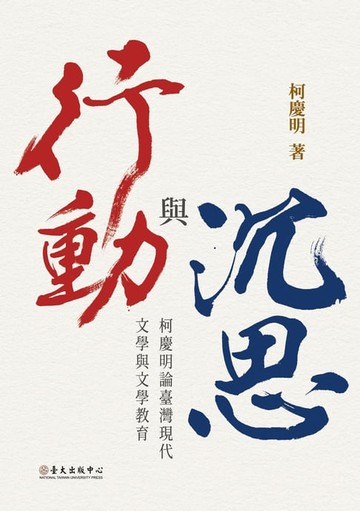 行動
與
沉思
柯慶明 著
柯慶明論臺灣現代
文學與文學教育
臺大出版中心
NATIONAL TAIWAN UNIVERSITY PRESS